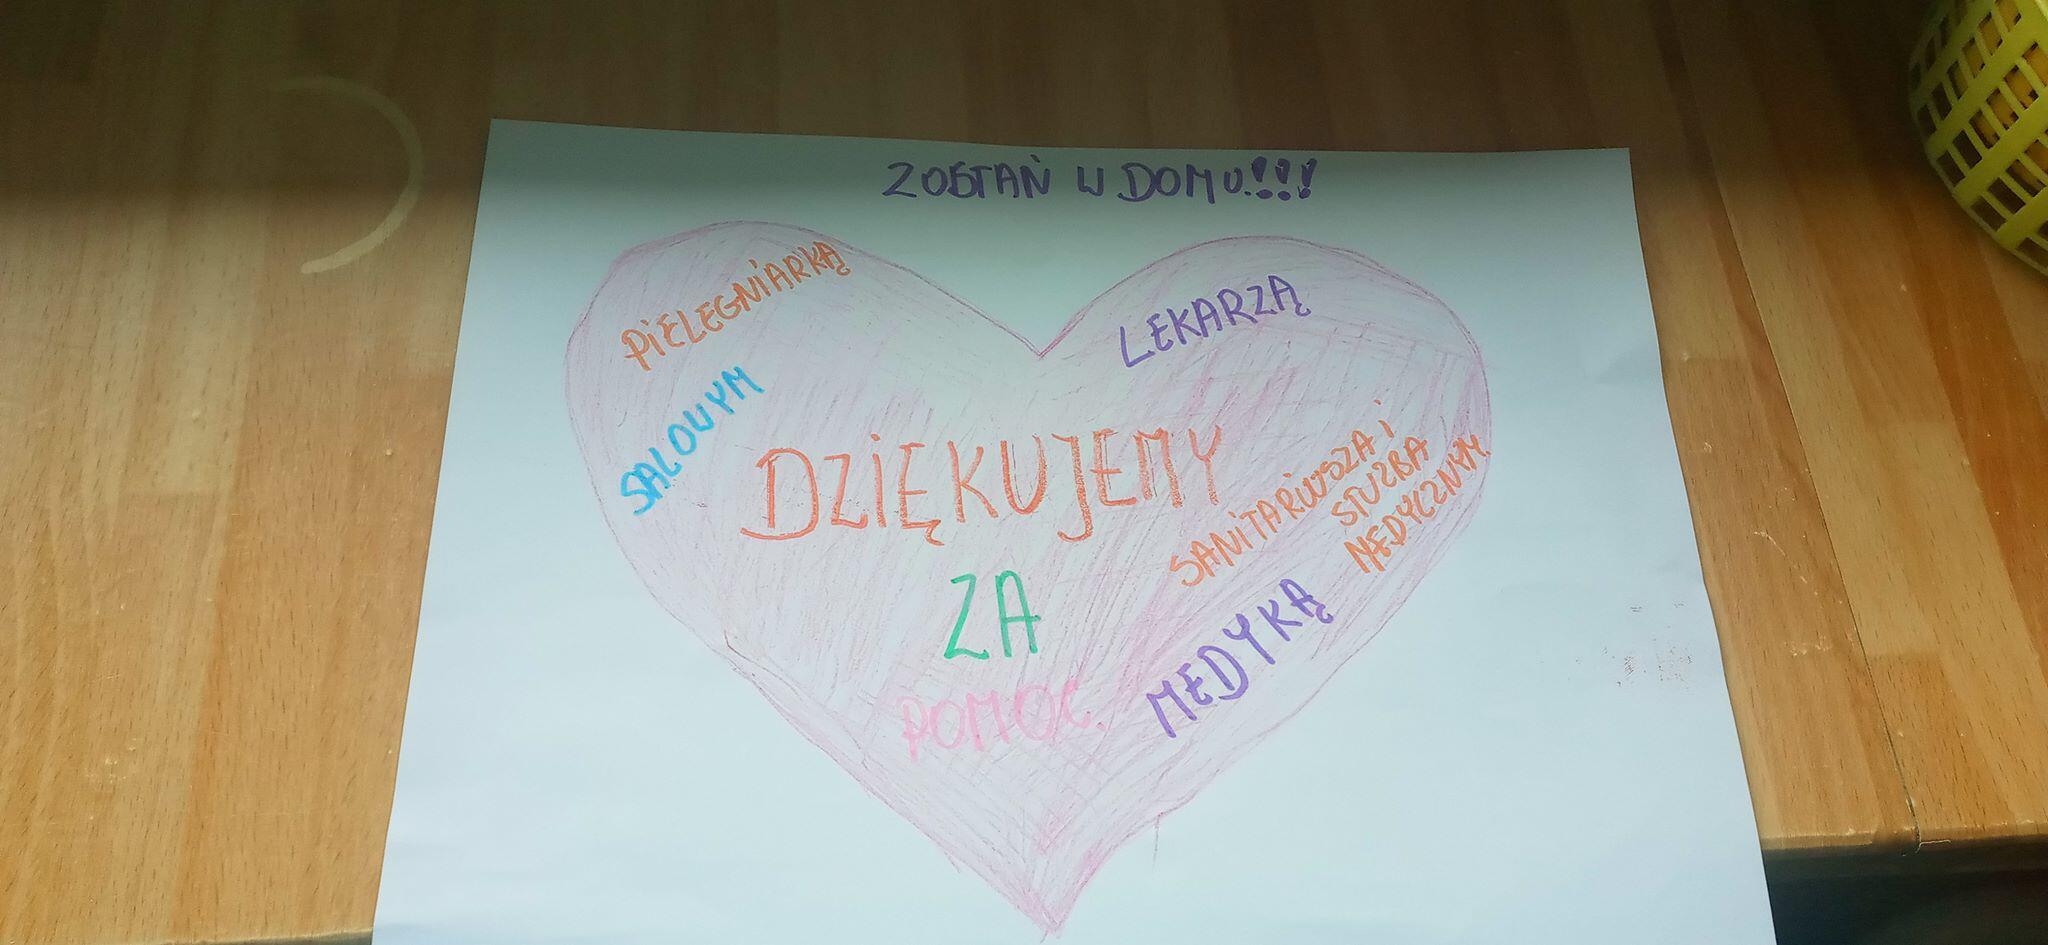 ZOSTAŃ W DOMU!!!
PIELĘGNIARKĄ
LEKARZĄ
SALOWYM
DZIĘKUJEMY
SANITARIUSZA i
SŁUŻBA
MEDYCZNYM.
ZA
MEDYKĄ
POMOC.